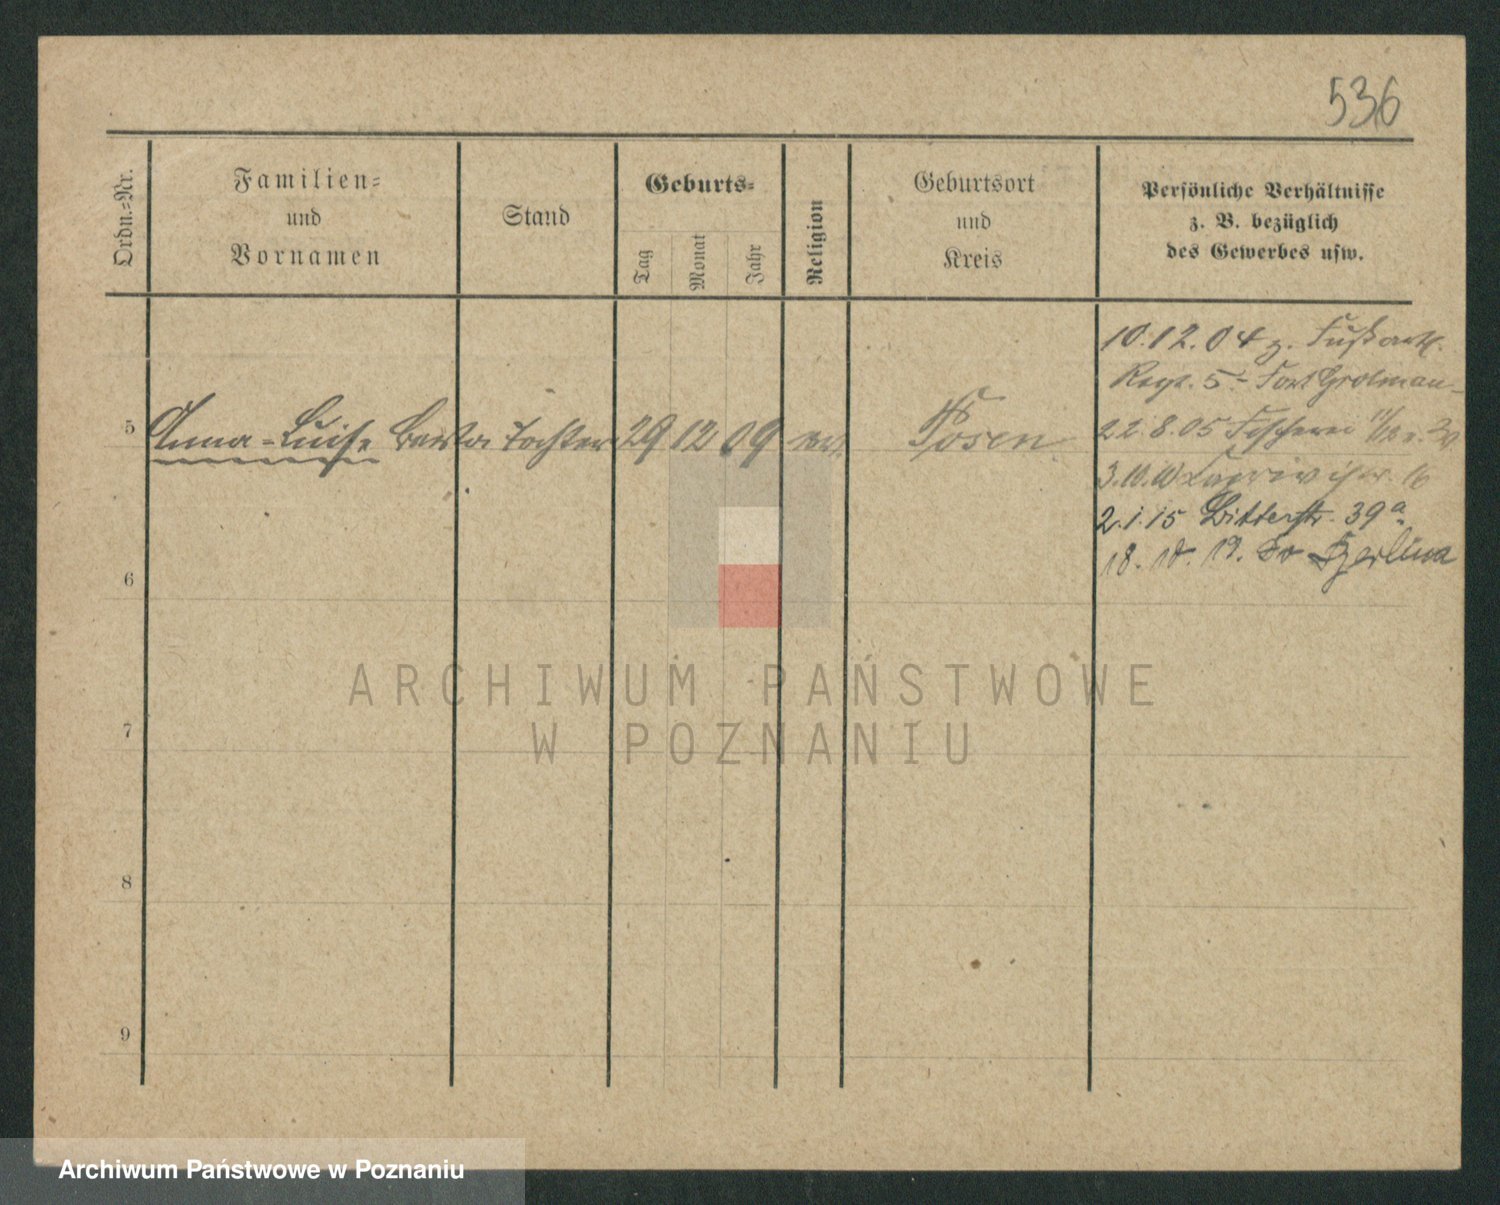 536
Ordn.-Nr.
Familien-
und
Vornamen
Stand
Geburts-
Tag
Monat
Jahr
Religion
Geburtsort
und
Kreis
Persönliche Verhältnisse
z. B. bezüglich
des Gewerbes usw.
10.12.04 z. Fußartl.
Regt. 5 - Fort Grolman-
5 Anna-Luise Berta Tochter 29 12 09 ev. Posen
22.8.05
3.10.10
2.1.15 Bitterstr. 39a
18.10.19.
6
7
8
9
ARCHIWUM PAŃSTWOWE
W POZNANIU
Archiwum Państwowe w Poznaniu